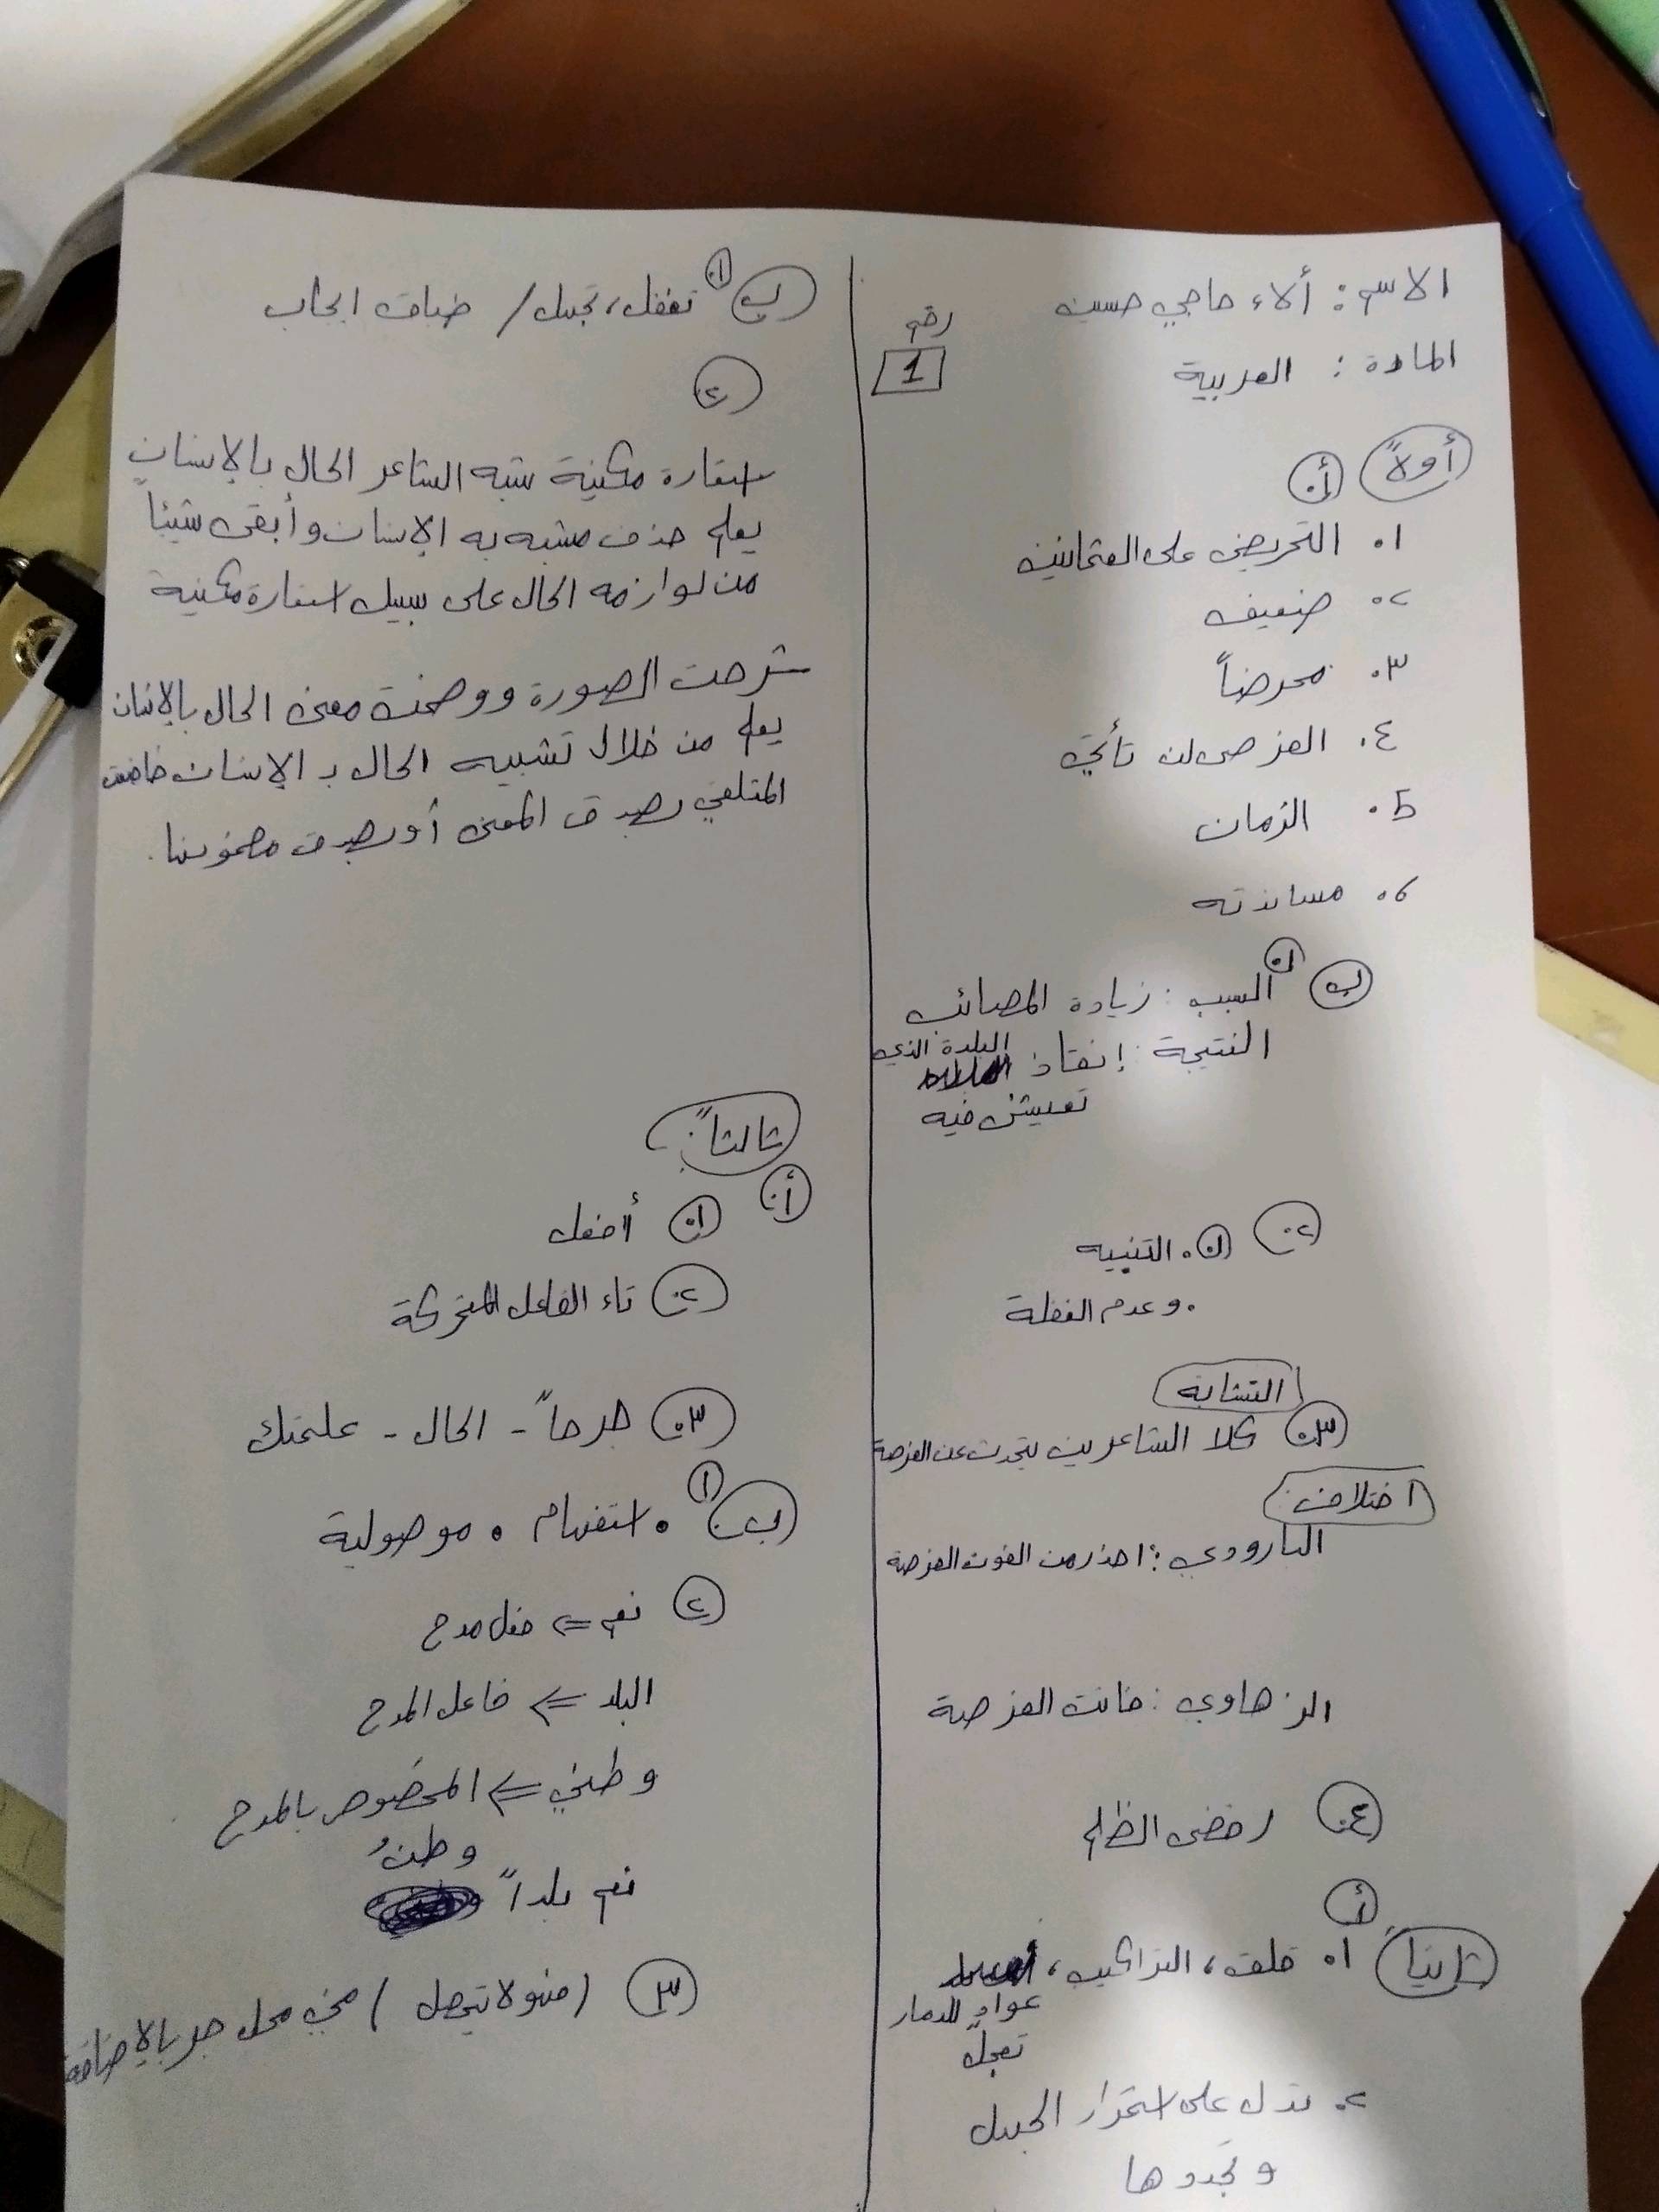 الاسم: ألاء حاجي حسين
المادة: العربية
رقم
1
أولاً أ.
١. التحريض على العثمانيين
٢. ضعيف
٣. محرضاً
٤. الفرص لن تأتي
٥. الزمان
٦. مساندته
ب ١. السبب: زيادة المصائب
النتيجة: إنقاذ البلدة الذي
تعيش فيه
٢. ١. التنبيه
. وعدم الغفلة
التشابه
٣. كلا الشاعرين يتحدث عن الفرصة
اختلاف:
البارودي: احذر من الفوت الفرصة
الزهاوي: فاتت الفرصة
٤. رفض الظلم
ثانياً أ
١. قلق، التراكيب،
عوادٍ للدمار
تعجل
٢. تدل على استمرار الجهل
وتجددها
ب. ١. تغفل، تجهل / ضباق الجاب
٢
استعارة مكنية شبه الشاعر الحال بالإنسان
يعلم حذف مشبه به الإنسان وأبقى شيئاً
من لوازمه الحال على سبيل استعارة مكنية
شرحت الصورة ووضحت معنى الحال بالإنسان
يعلم من خلال تشبيه الحال بـ الإنسان
المتلقي بصدق المعنى أو بصدق
ثالثاً:
أ. ١. أفعل
٢. تاء الفاعل المتحركة
٣. جرحاً - الحال - علمتك
ب. ١ . استفهام . موصولية
٢ نعم ⇐ فعل مدح
البلد ⇐ فاعل المدح
وطني ⇐ المخصوص بالمدح
نعم بلداً وطنُ
٣ (فهو لا تجهل) في محل جر بالإضافة